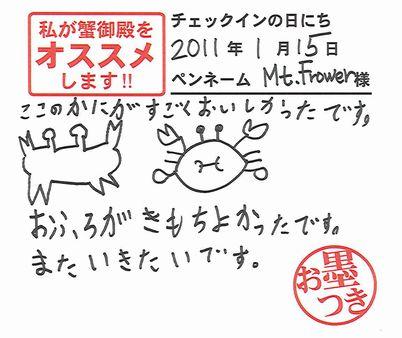 私が蟹御殿を
オススメ
します!!
チェックインの日にち
2011年1月15日
ペンネーム Mt.Frower様
ここのかにがすごくおいしかったです。
おふろがきもちよかったです。
またいきたいです。
お墨
つき